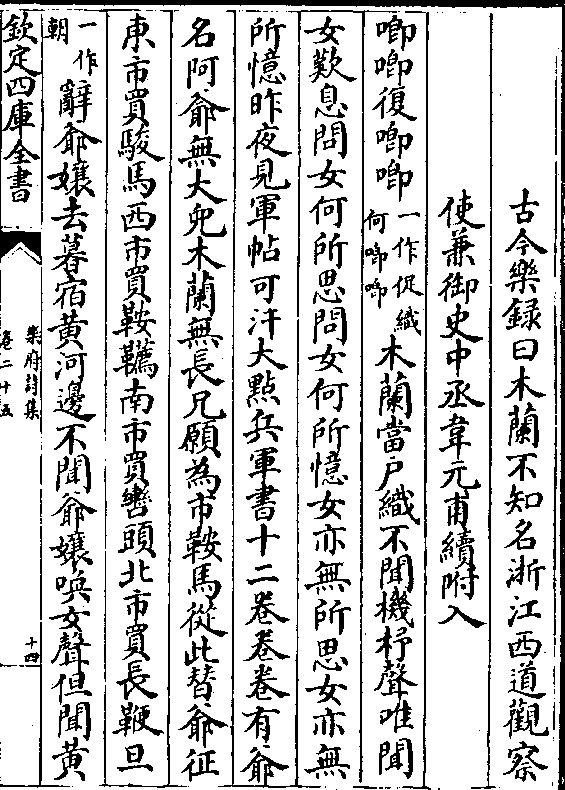 古今樂録曰木蘭不知名浙江西道觀察
使兼御史中丞韋元甫續附入
唧唧復唧唧一作促織何唧唧木蘭當户織不聞機杼聲唯聞
女歎息問女何所思問女何所憶女亦無所思女亦無
所憶昨夜見軍帖可汗大點兵軍書十二卷卷卷有爺
名阿爺無大兒木蘭無長兄願為市鞍馬從此替爺征
東市買駿馬西市買鞍韉南市買轡頭北市買長鞭旦
一作朝辭爺孃去暮宿黄河邊不聞爺孃喚女聲但聞黄
欽定四庫全書
樂府詩集
卷二十五
十四